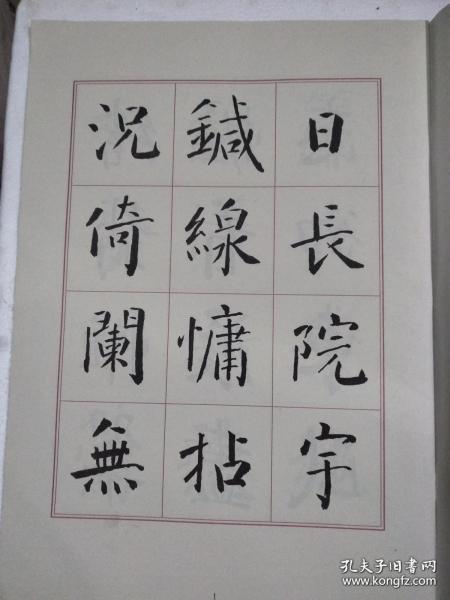 日長院宇
鍼線慵拈
況倚闌無
孔夫子旧书网
www.kongfz.com